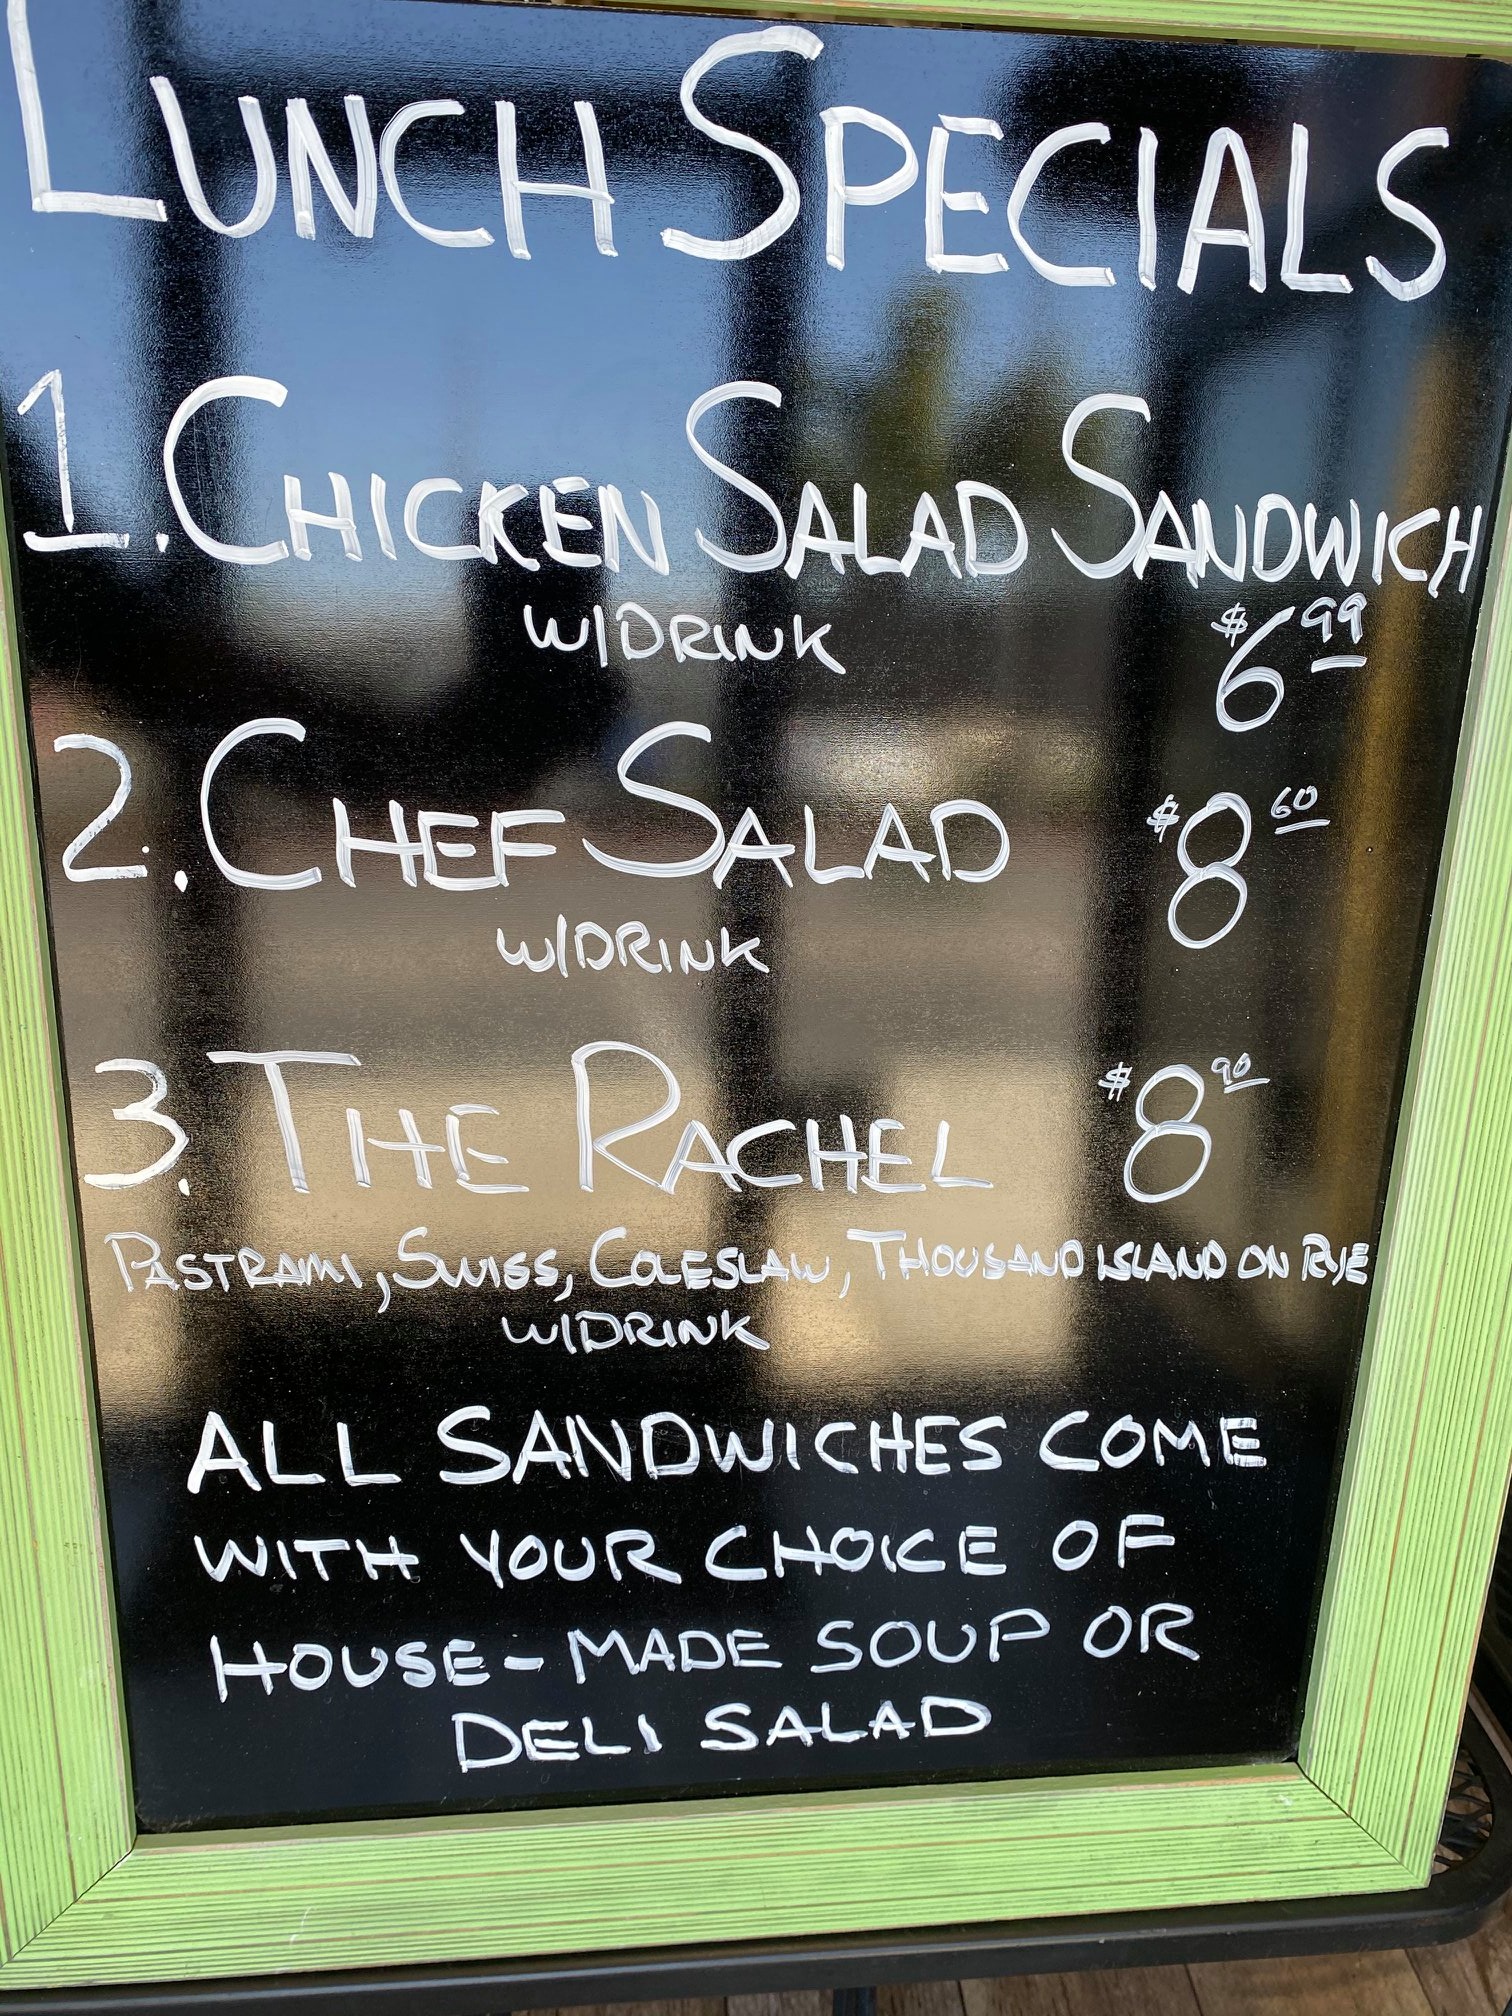 LUNCH SPECIALS
1. CHICKEN SALAD SANDWICH
W/DRINK $6.99
2. CHEF SALAD $8.60
W/DRINK
3. THE RACHEL $8.90
PASTRAMI, SWISS, COLESLAW, THOUSAND ISLAND ON RYE
W/DRINK
ALL SANDWICHES COME
WITH YOUR CHOICE OF
HOUSE-MADE SOUP OR
DELI SALAD